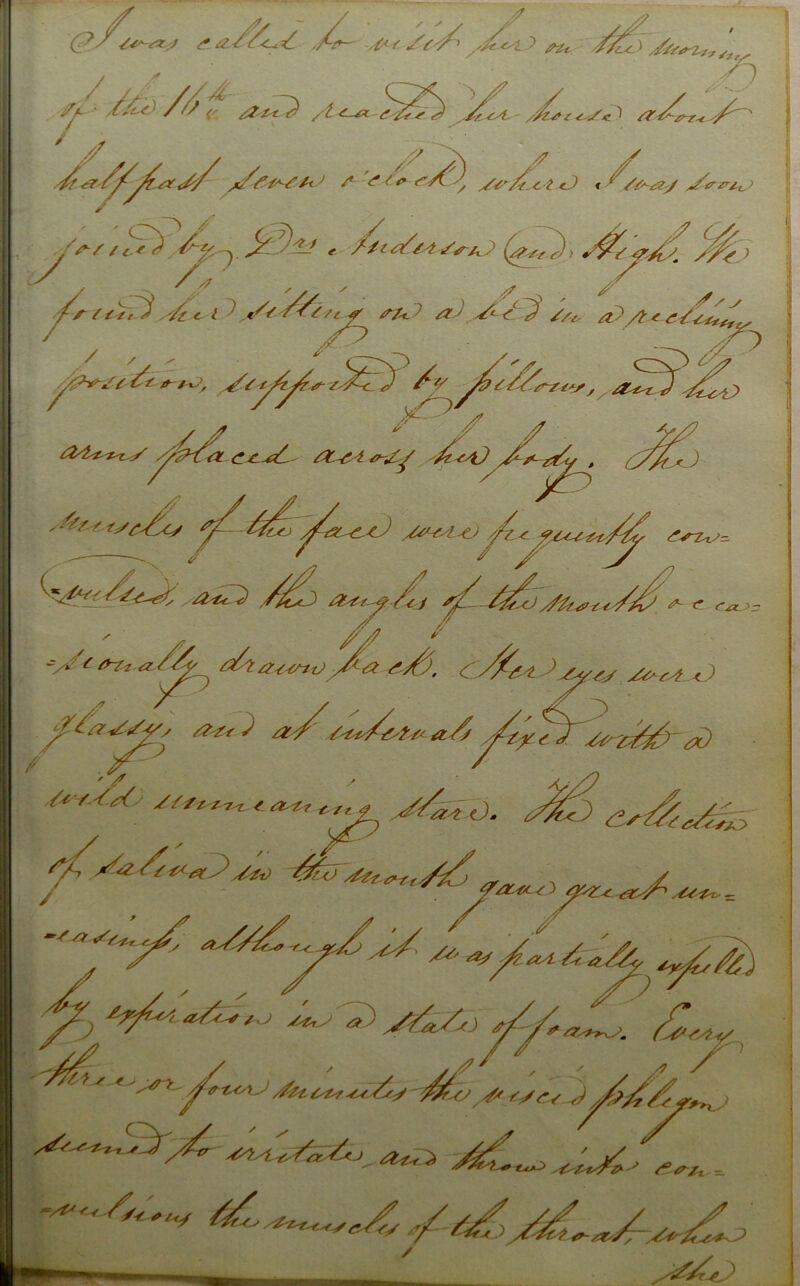 I was called to visit her on the morning
of the 16th and reached her house about
half past seven o'clock, where I was soon
joined by Drs Anderson and High. We
found her sitting on a bed in a reclining
position, supported by pillows, and her
arms placed across her body. The
muscles of the face were frequently con=
=vulsed, and the angles of the mouth occa=
=sionally drawn back. Her eyes were
glassy, and at intervals fixed with a
wild unmeaning stare. The collection
of saliva in the mouth gave great un=
=easiness, although it was partially expelled
by expiration in a state of foam. Every
three or four minutes the viscid phlegm
seemed to irritate and throw into con=
=vulsions the muscles of the throat, when
she